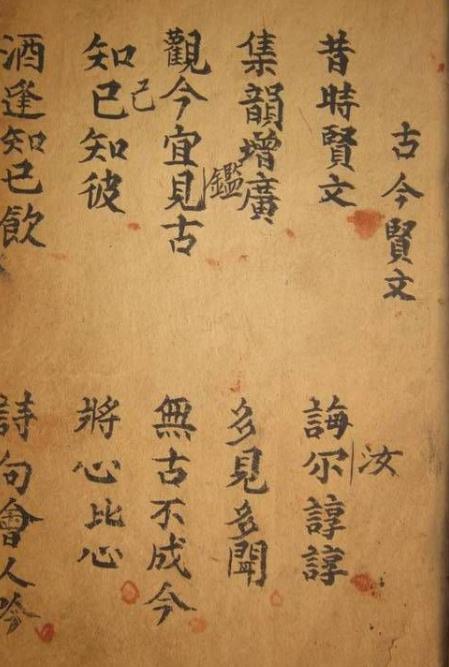 古今賢文
昔時賢文
誨尔諄諄
汝
集韻增廣
多見多聞
觀今宜見古
鑑
無古不成今
知已知彼
己
將心比心
酒逢知已飲
詩句會人吟